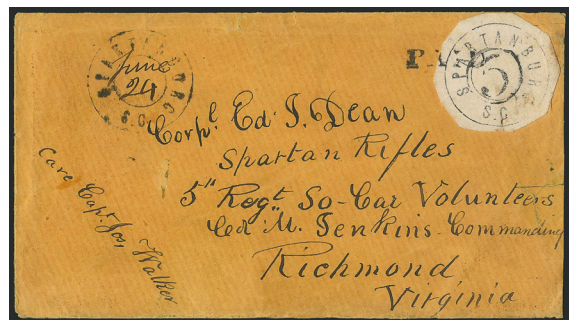 SPARTANBURG
June
24
S.C.
P
SPARTANBUR
5
S.C
Corpl. Ed. J. Dean
Spartan Rifles
5th Regt. So-Car Volunteers
Col M. Jenkins-Commanding
Richmond
Virginia
Care Capt. Jos. Walker